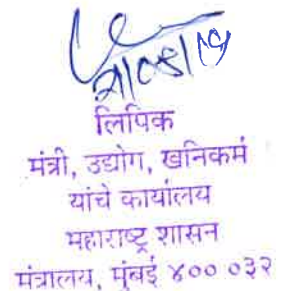 लिपिक
मंत्री, उद्योग, खनिकर्म
यांचे कार्यालय
महाराष्ट्र शासन
मंत्रालय, मुंबई ४०० ०३२